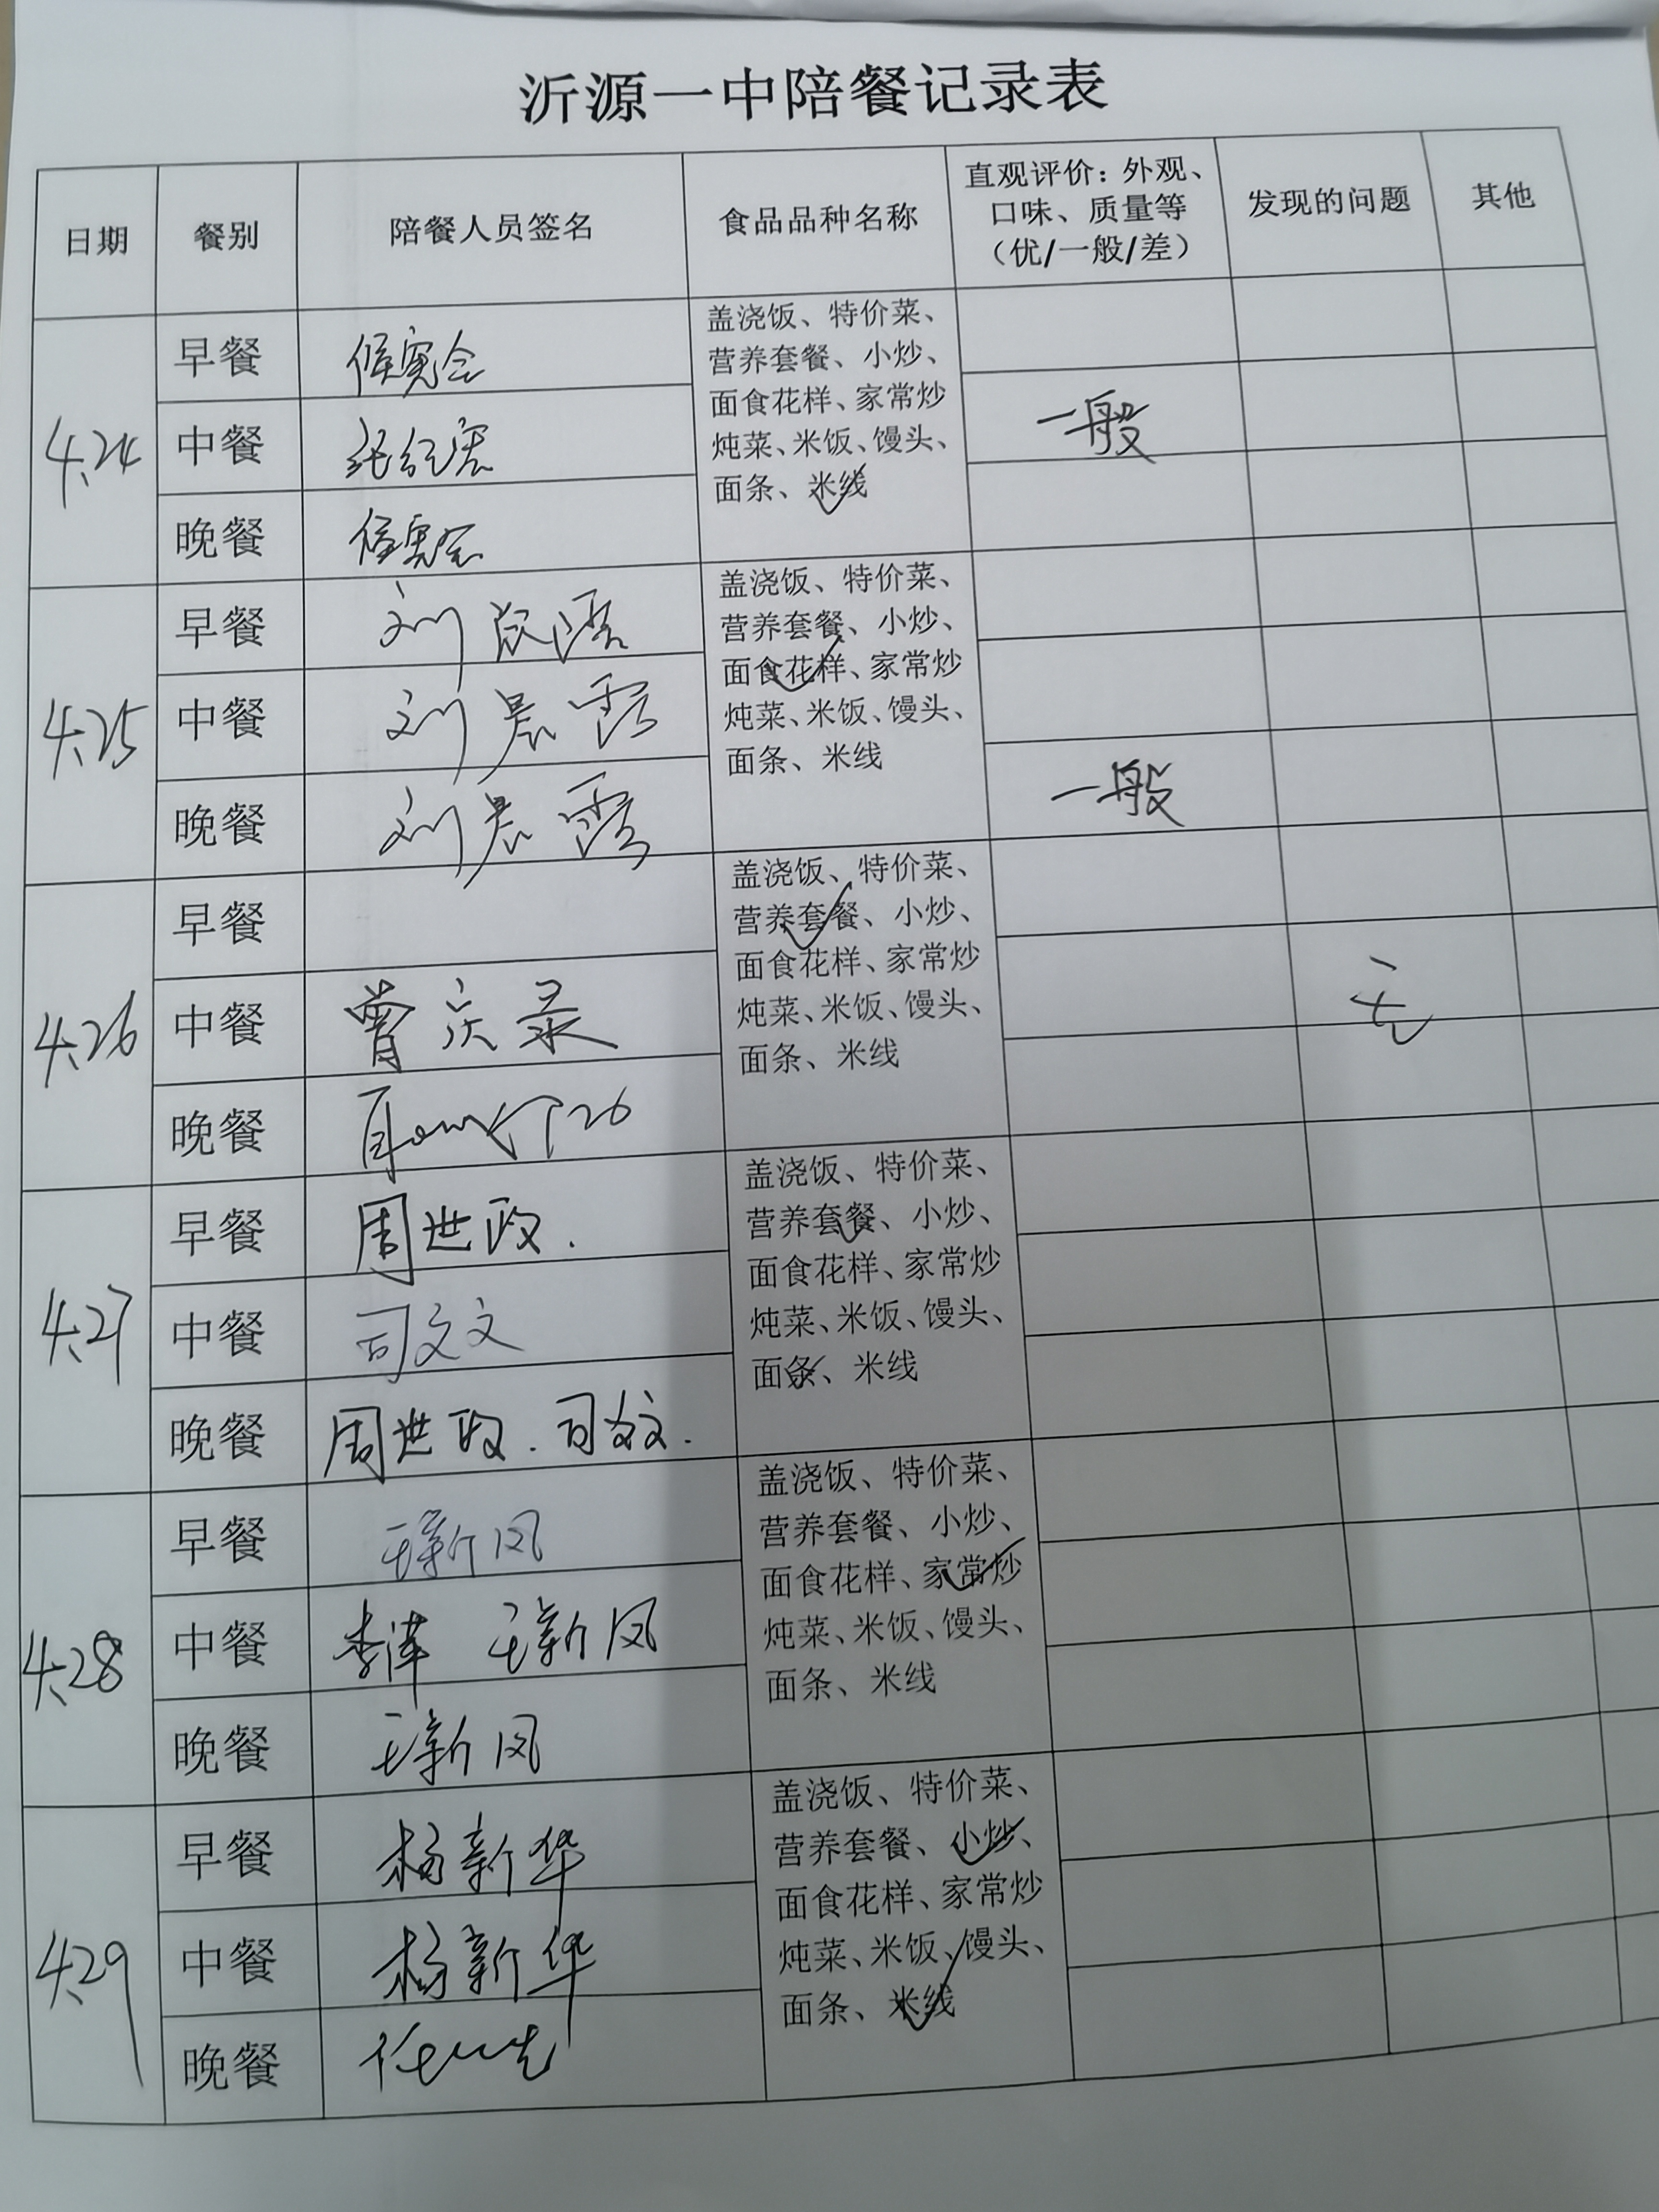 沂源一中陪餐记录表
日期 餐别 陪餐人员签名 食品品种名称 直观评价：外观、口味、质量等（优/一般/差） 发现的问题 其他
4.24
早餐
中餐
晚餐
盖浇饭、特价菜、
营养套餐、小炒、
面食花样、家常炒
炖菜、米饭、馒头、
面条、米线
一般
4.25
早餐
中餐 刘晨露
晚餐 刘晨露
盖浇饭、特价菜、
营养套餐、小炒、
面食花样、家常炒
炖菜、米饭、馒头、
面条、米线
一般
4.26
早餐
中餐 曾庆录
晚餐
盖浇饭、特价菜、
营养套餐、小炒、
面食花样、家常炒
炖菜、米饭、馒头、
面条、米线
无
4.27
早餐 周世政.
中餐 司文文
晚餐 周世政.司文文.
盖浇饭、特价菜、
营养套餐、小炒、
面食花样、家常炒
炖菜、米饭、馒头、
面条、米线
4.28
早餐 王新凤
中餐 李萍 王新凤
晚餐 王新凤
盖浇饭、特价菜、
营养套餐、小炒、
面食花样、家常炒
炖菜、米饭、馒头、
面条、米线
4.29
早餐 杨新华
中餐 杨新华
晚餐
盖浇饭、特价菜、
营养套餐、小炒、
面食花样、家常炒
炖菜、米饭、馒头、
面条、米线